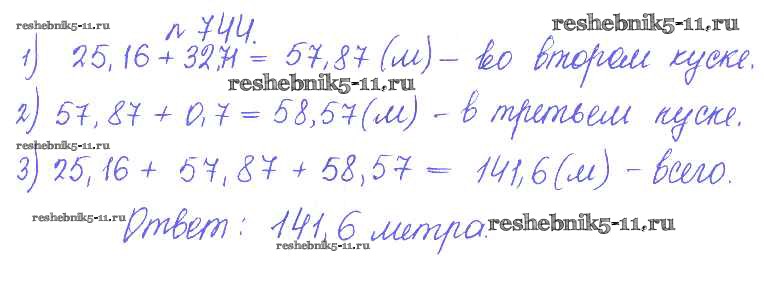 reshebnik5-11.ru n 744. reshebnik5-11.ru
1) 25,16 + 32,71 = 57,87 (м) – во втором куске.
reshebnik5-11.ru
2) 57,87 + 0,7 = 58,57 (м) – в третьем куске.
reshebnik5-11.ru
3) 25,16 + 57,87 + 58,57 = 141,6 (м) – всего.
reshebnik5-11.ru Ответ: 141,6 метра. reshebnik5-11.ru
reshebnik5-11.ru